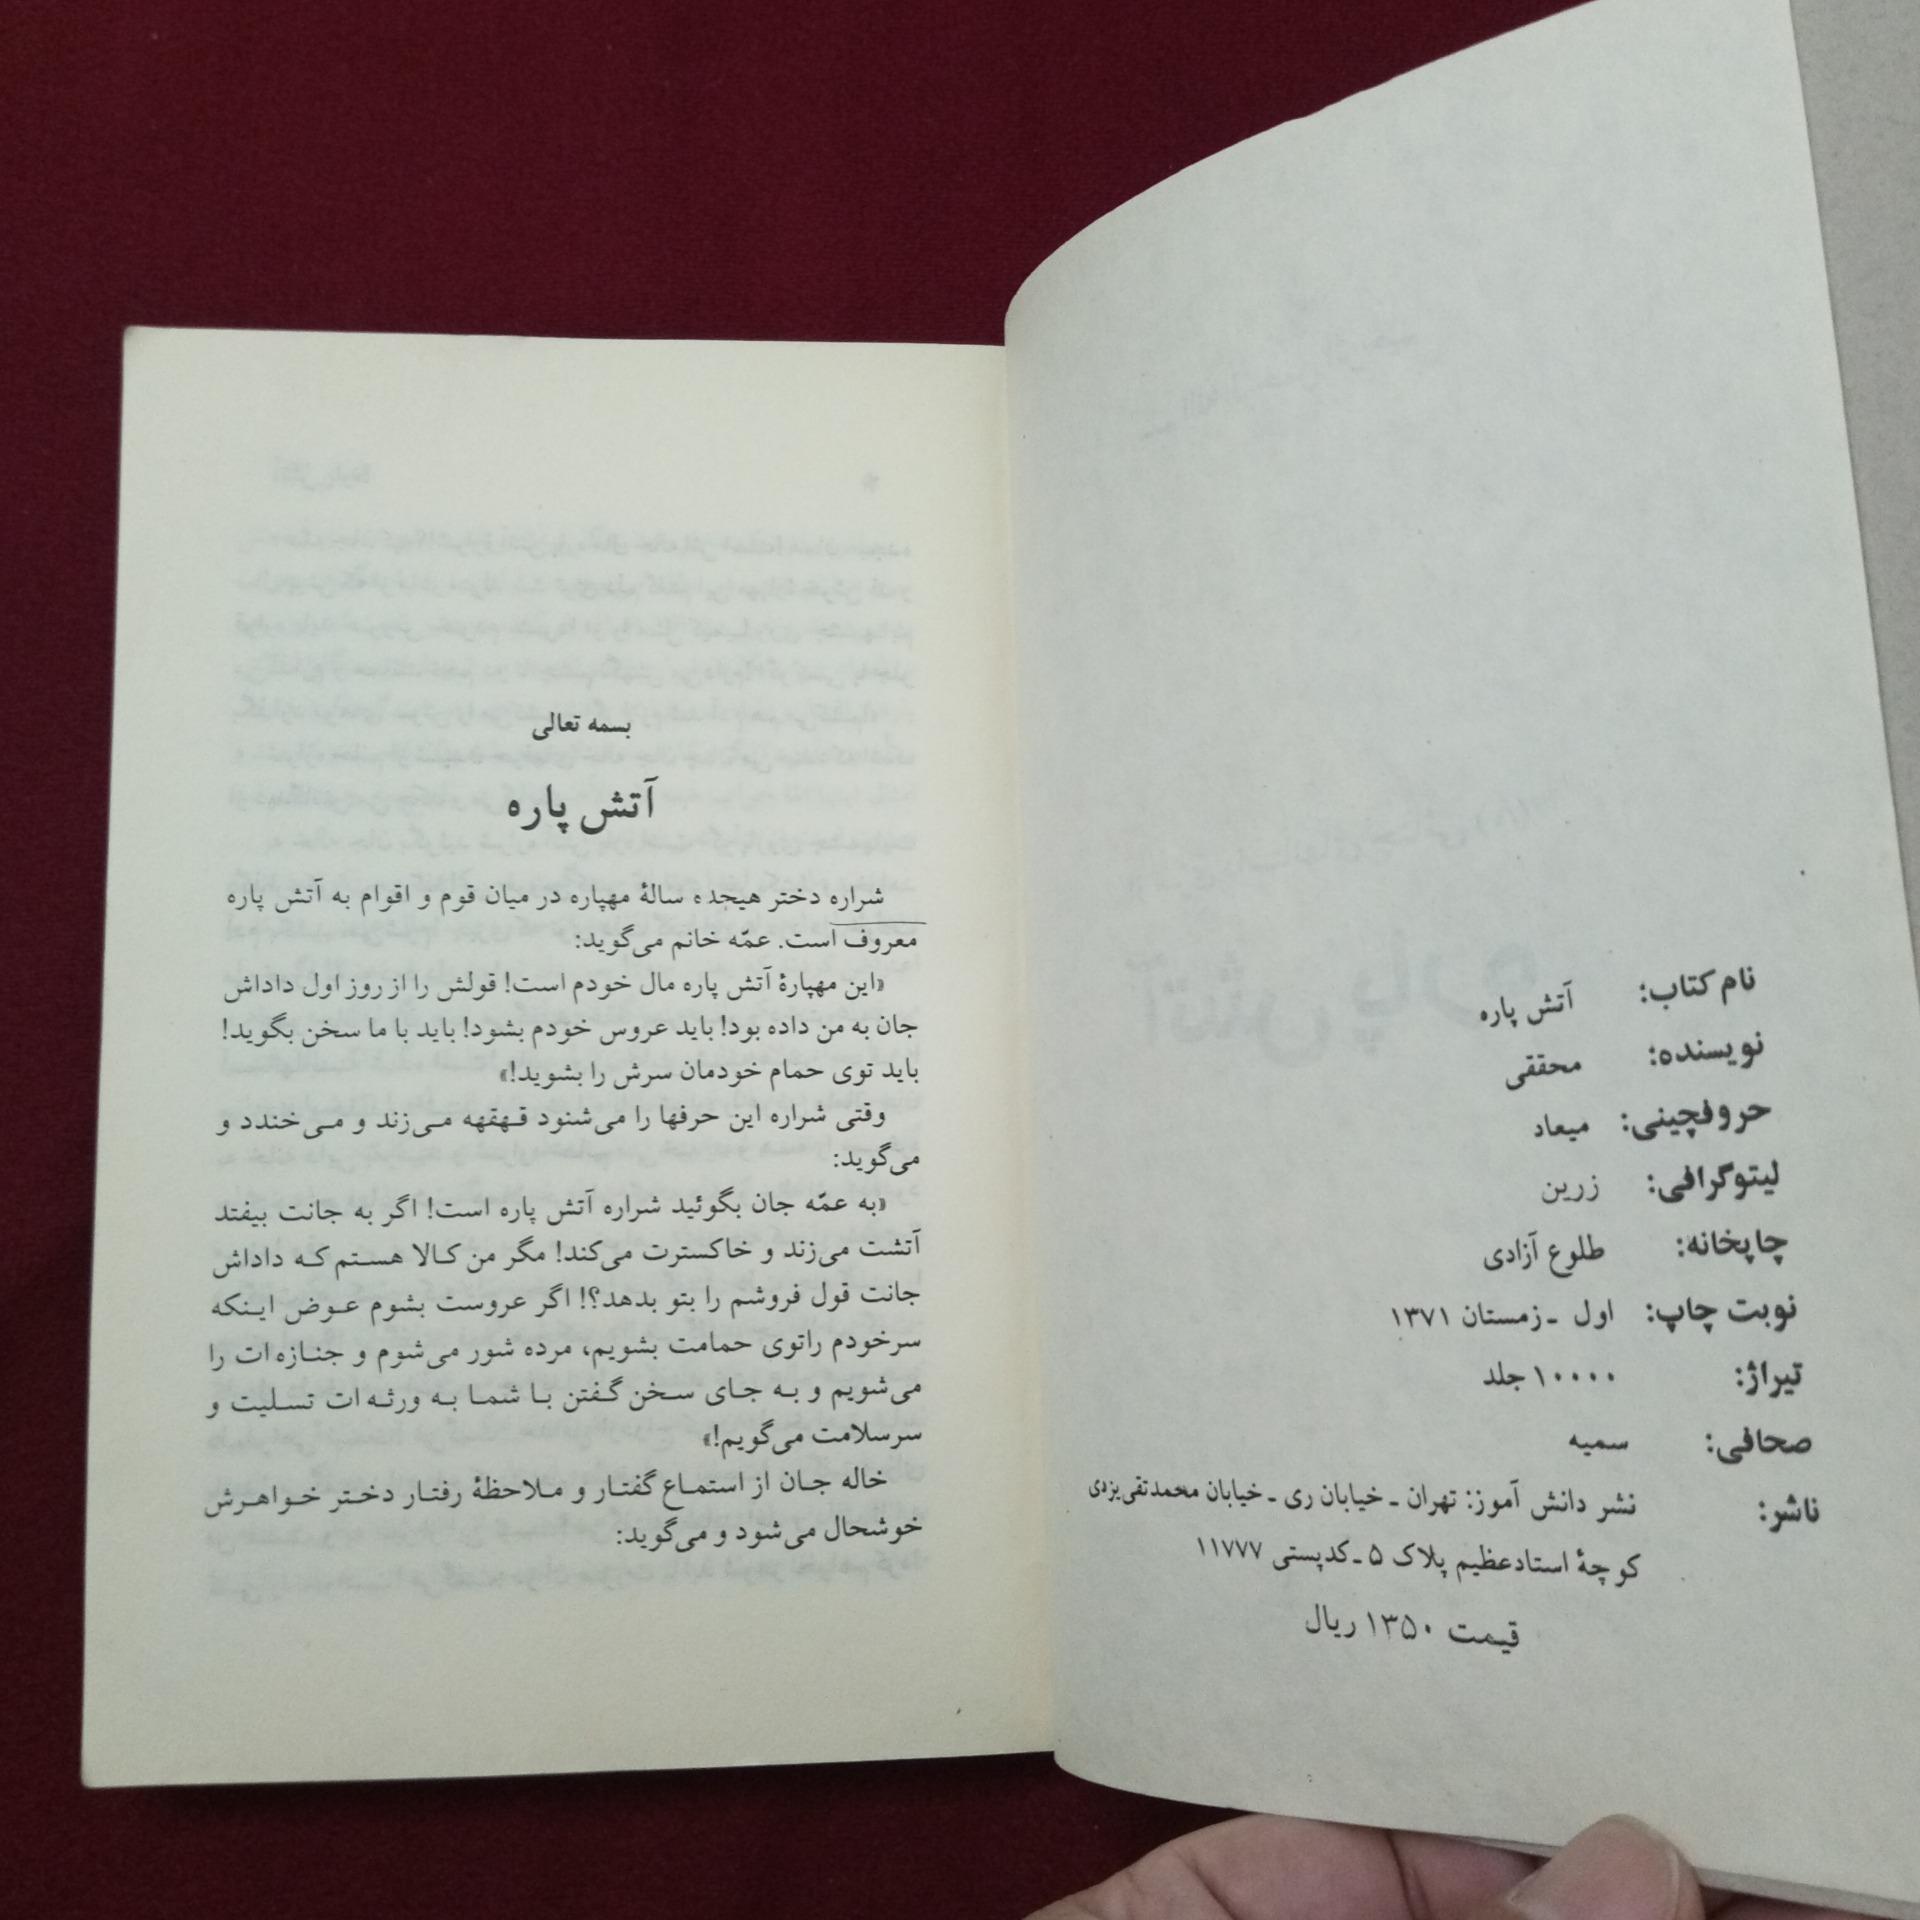 نام کتاب: آتش پاره
نویسنده: محققی
حروفچینی: میعاد
لیتوگرافی: زرین
چاپخانه: طلوع آزادی
نوبت چاپ: اول ـ زمستان ۱۳۷۱
تیراژ: ۱۰۰۰۰ جلد
صحافی: سمیه
ناشر: نشر دانش آموز: تهران ـ خیابان ری ـ خیابان محمدتقی یزدی
کوچهٔ استادعظیم پلاک ۵ ـ کدپستی ۱۱۷۷۷
قیمت ۱۳۵۰ ریال
بسمه تعالی
آتش پاره
شراره دختر هیجده سالهٔ مهپاره در میان قوم و اقوام به آتش پاره
معروف است. عمّه خانم می‌گوید:
«این مهپارهٔ آتش پاره مال خودم است! قولش را از روز اول داداش
جان به من داده بود! باید عروس خودم بشود! باید با ما سخن بگوید!
باید توی حمام خودمان سرش را بشوید!»
وقتی شراره این حرفها را می‌شنود قهقهه می‌زند و می‌خندد و
می‌گوید:
«به عمّه جان بگوئید شراره آتش پاره است! اگر به جانت بیفتد
آتشت می‌زند و خاکسترت می‌کند! مگر من کالا هستم که داداش
جانت قول فروشم را بتو بدهد؟! اگر عروست بشوم عوض اینکه
سرخودم راتوی حمامت بشویم، مرده شور می‌شوم و جنازه ات را
می‌شویم و به جای سخن گفتن با شما به ورثه ات تسلیت و
سرسلامت می‌گویم!»
خاله جان از استماع گفتار و ملاحظهٔ رفتار دختر خواهرش
خوشحال می‌شود و می‌گوید: